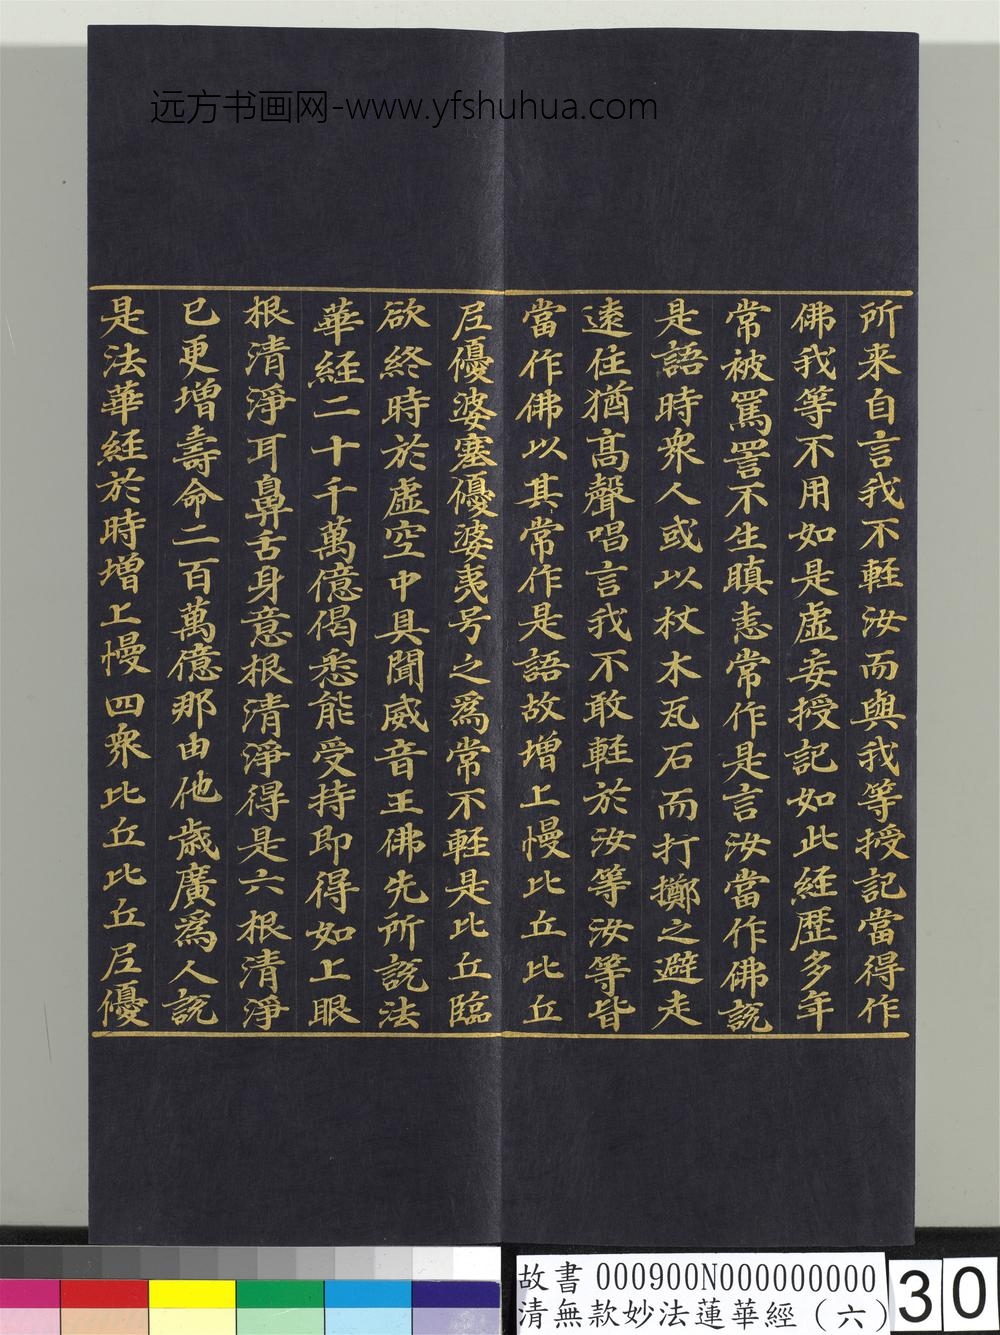 远方书画网-www.yfshuhua.com
所来自言我不輕汝而與我等授記當得作
佛我等不用如是虛妄授記如此經歷多年
常被罵詈不生瞋恚常作是言汝當作佛說
是語時衆人或以杖木瓦石而打擲之避走
遠住猶髙聲唱言我不敢輕於汝等汝等皆
當作佛以其常作是語故增上慢比丘比丘
尼優婆塞優婆夷号之爲常不輕是比丘臨
欲終時於虛空中具聞威音王佛先所說法
華經二十千萬億偈悉能受持即得如上眼
根清淨耳鼻舌身意根清淨得是六根清淨
已更增壽命二百萬億那由他歲廣爲人說
是法華經於時增上慢四衆比丘比丘尼優
故書 000900N000000000
清無款妙法蓮華經（六）
30